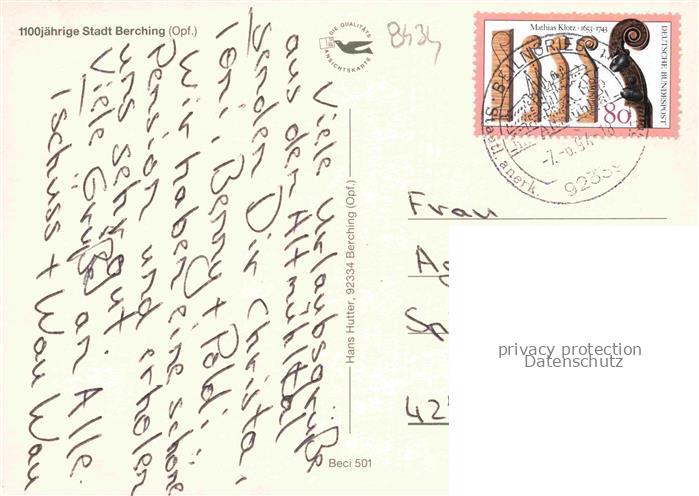 1100jährige Stadt Berching (Opf.)
DIE QUALITÄTS
ANSICHTSKARTE
8434
Mathias Klotz · 1653-1743
DEUTSCHE BUNDESPOST
80
BEILNGRIES
staatl. anerk.
92339
Viele Urlaubsgrüße
aus dem Altmühltal
senden Dir Christa,
Toni, Benny + Poldi.
Wir haben eine schöne
Pension und erholen
uns sehr gut.
Viele Grüße an Alle.
Tschuss + Wau Wau
Hans Hutter, 92334 Berching (Opf.)
Beci 501
Frau
42
privacy protection
Datenschutz